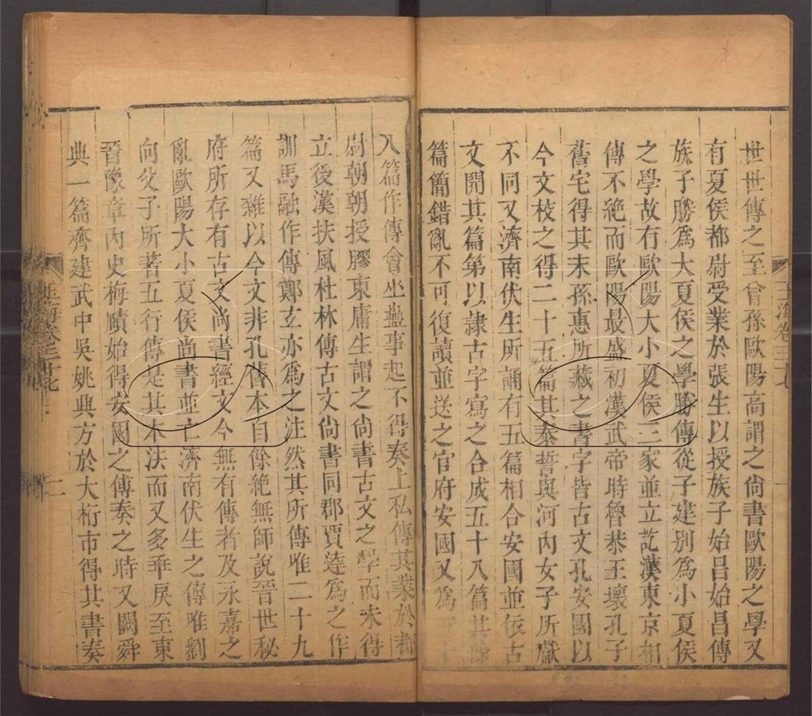 世世傳之至曾孫歐陽高謂之尚書歐陽之學又
有夏侯都尉受業於張生以授族子始昌始昌傳
族子勝爲大夏侯之學勝傳從子建別爲小夏侯
之學故有歐陽大小夏侯三家並立訖漢東京相
傳不絕而歐陽最盛初漢武帝時魯恭王壞孔子
舊宅得其末孫惠所藏之書字皆古文孔安國以
今文校之得二十五篇其泰誓與河內女子所獻
不同又濟南伏生所誦有五篇相合安國並依古
文開其篇第以隸古字寫之合成五十八篇其餘
篇簡錯亂不可復讀並送之官府安國又爲五十
八篇作傳會巫蠱事起不得奏上私傳其業於都
尉朝朝授膠東庸生謂之尚書古文之學而未得
立後漢扶風杜林傳古文尚書同郡賈逵爲之作
訓馬融作傳鄭玄亦爲之注然其所傳唯二十九
篇又雜以今文非孔舊本自餘絕無師說晉世秘
府所存有古文尚書經文今無有傳者及永嘉之
亂歐陽大小夏侯尚書並亡濟南伏生之傳唯劉
向父子所著五行傳是其本法而又多乖戾至東
晉豫章內史梅賾始得安國之傳奏之時又闕舜
典一篇齊建武中吳姚興方於大桁市得其書奏
玉海卷三十七
二